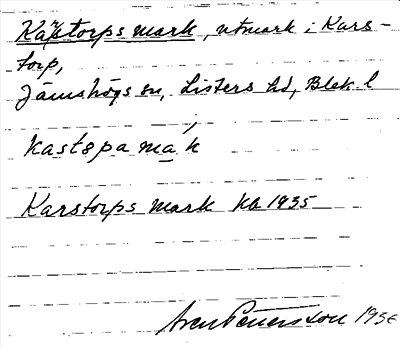 Karstorps mark, utmark i Kars-
torp,
Jämshögs sn, Listers hd, Blek. l
kastspa mak
Karstorps mark Kb 1935
Sven Petersson 193